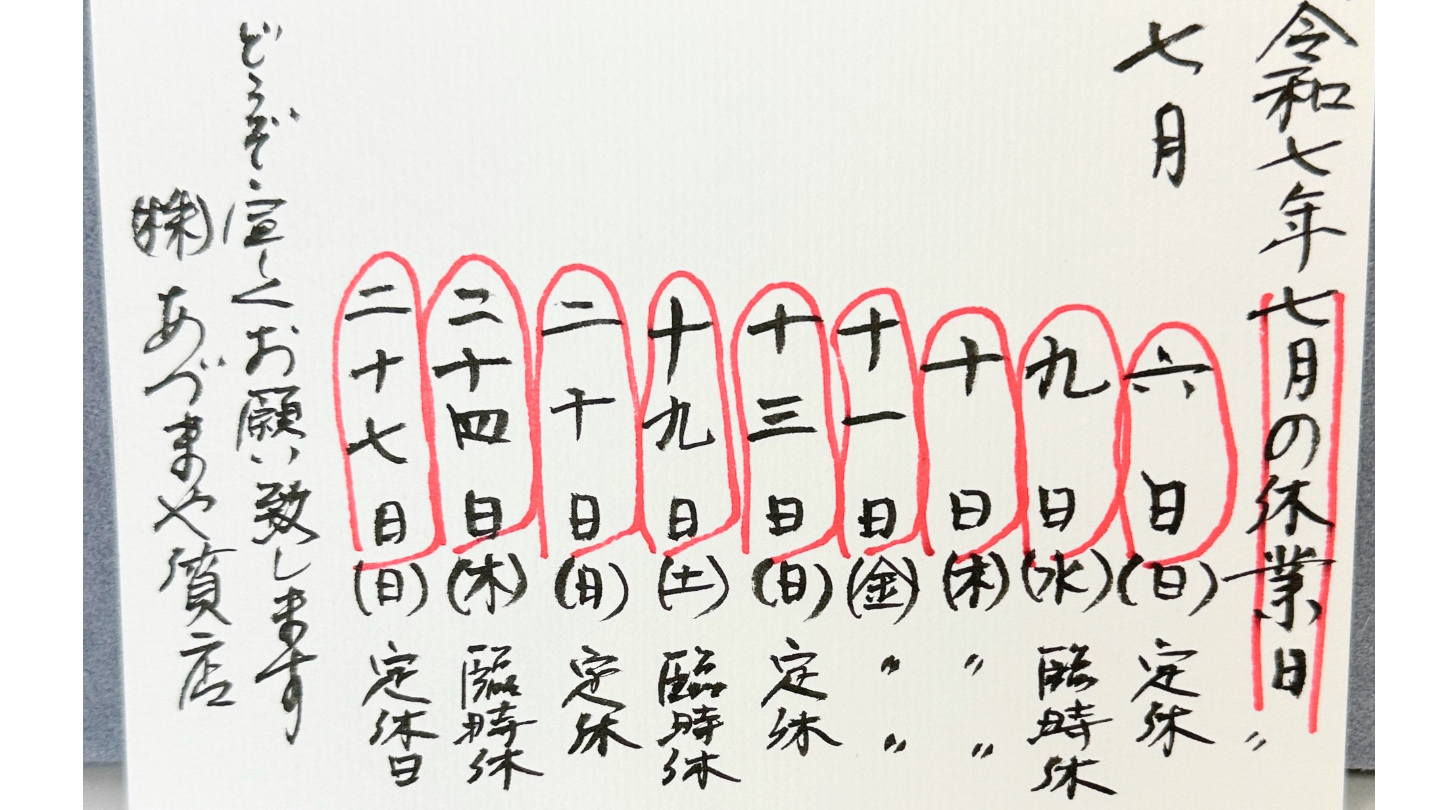 令和七年七月の休業日〃
七月
六日(日)定休
九日(水)臨時休
十日(木)〃〃
十一日(金)〃〃
十三日(日)定休
十九日(土)臨時休
二十日(日)定休
二十四日(木)臨時休
二十七日(日)定休日
どうぞ宜しくお願い致します
㈱あづまや質店